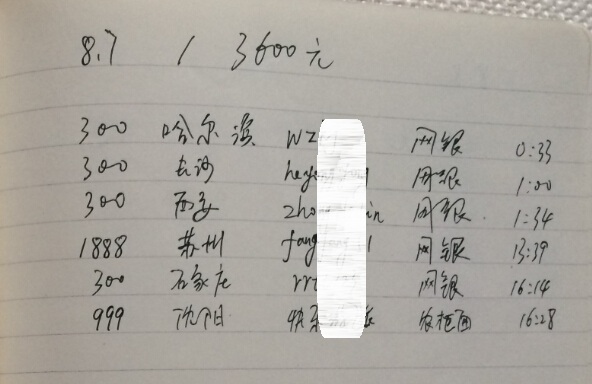 8.7 1 3600元
300 哈尔滨 wz 网银 0:33
300 长沙 heye 网银 1:00
300 西安 zho in 网银 1:34
1888 苏州 fang l 网银 13:39
300 石家庄 rr 网银 16:14
999 沈阳 快 农柜面 16:28